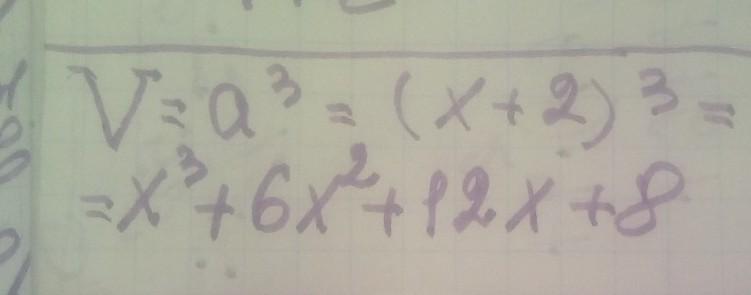 V = a³ = (x + 2)³ =
= x³ + 6x² + 12x + 8